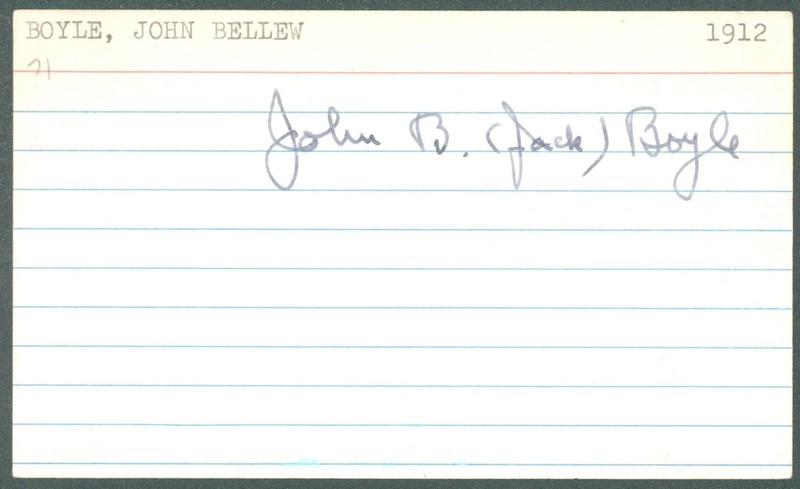 BOYLE, JOHN BELLEW 1912
71
John B. (Jack) Boyle